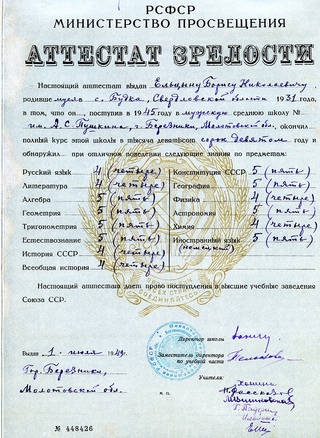 РСФСР
МИНИСТЕРСТВО ПРОСВЕЩЕНИЯ
АТТЕСТАТ ЗРЕЛОСТИ
Настоящий аттестат выдан Ельцыну Борису Николаевичу
родившемуся с. Будка, Свердловской области 1931 года,
в том, что он, поступив в 1945 году в мужскую среднюю школу №
им. А.С. Пушкина, г. Березники, Молотовской обл., окончил
полный курс этой школы в тысяча девятьсот сорок девятом году и
обнаружил при отличном поведении следующие знания по предметам:
Русский язык 4 (четыре) Конституция СССР 5 (пять)
Литература 4 (четыре) География 5 (пять)
Алгебра 5 (пять) Физика 4 (четыре)
Геометрия 5 (пять) Астрономия 5 (пять)
Тригонометрия 5 (пять) Химия 4 (четыре)
Естествознание 5 (пять) Иностранный язык 5 (пять)
История СССР 4 (четыре) (немецкий)
Всеобщая история 4 (четыре)
Настоящий аттестат дает право поступления в высшие учебные заведения
Союза ССР.
Директор школы
Выдан 1 июля 1949 г.
Заместитель директора
по учебной части
Гор. Березники,
Учителя:
Молотовской обл.
М. П.
№ 448426